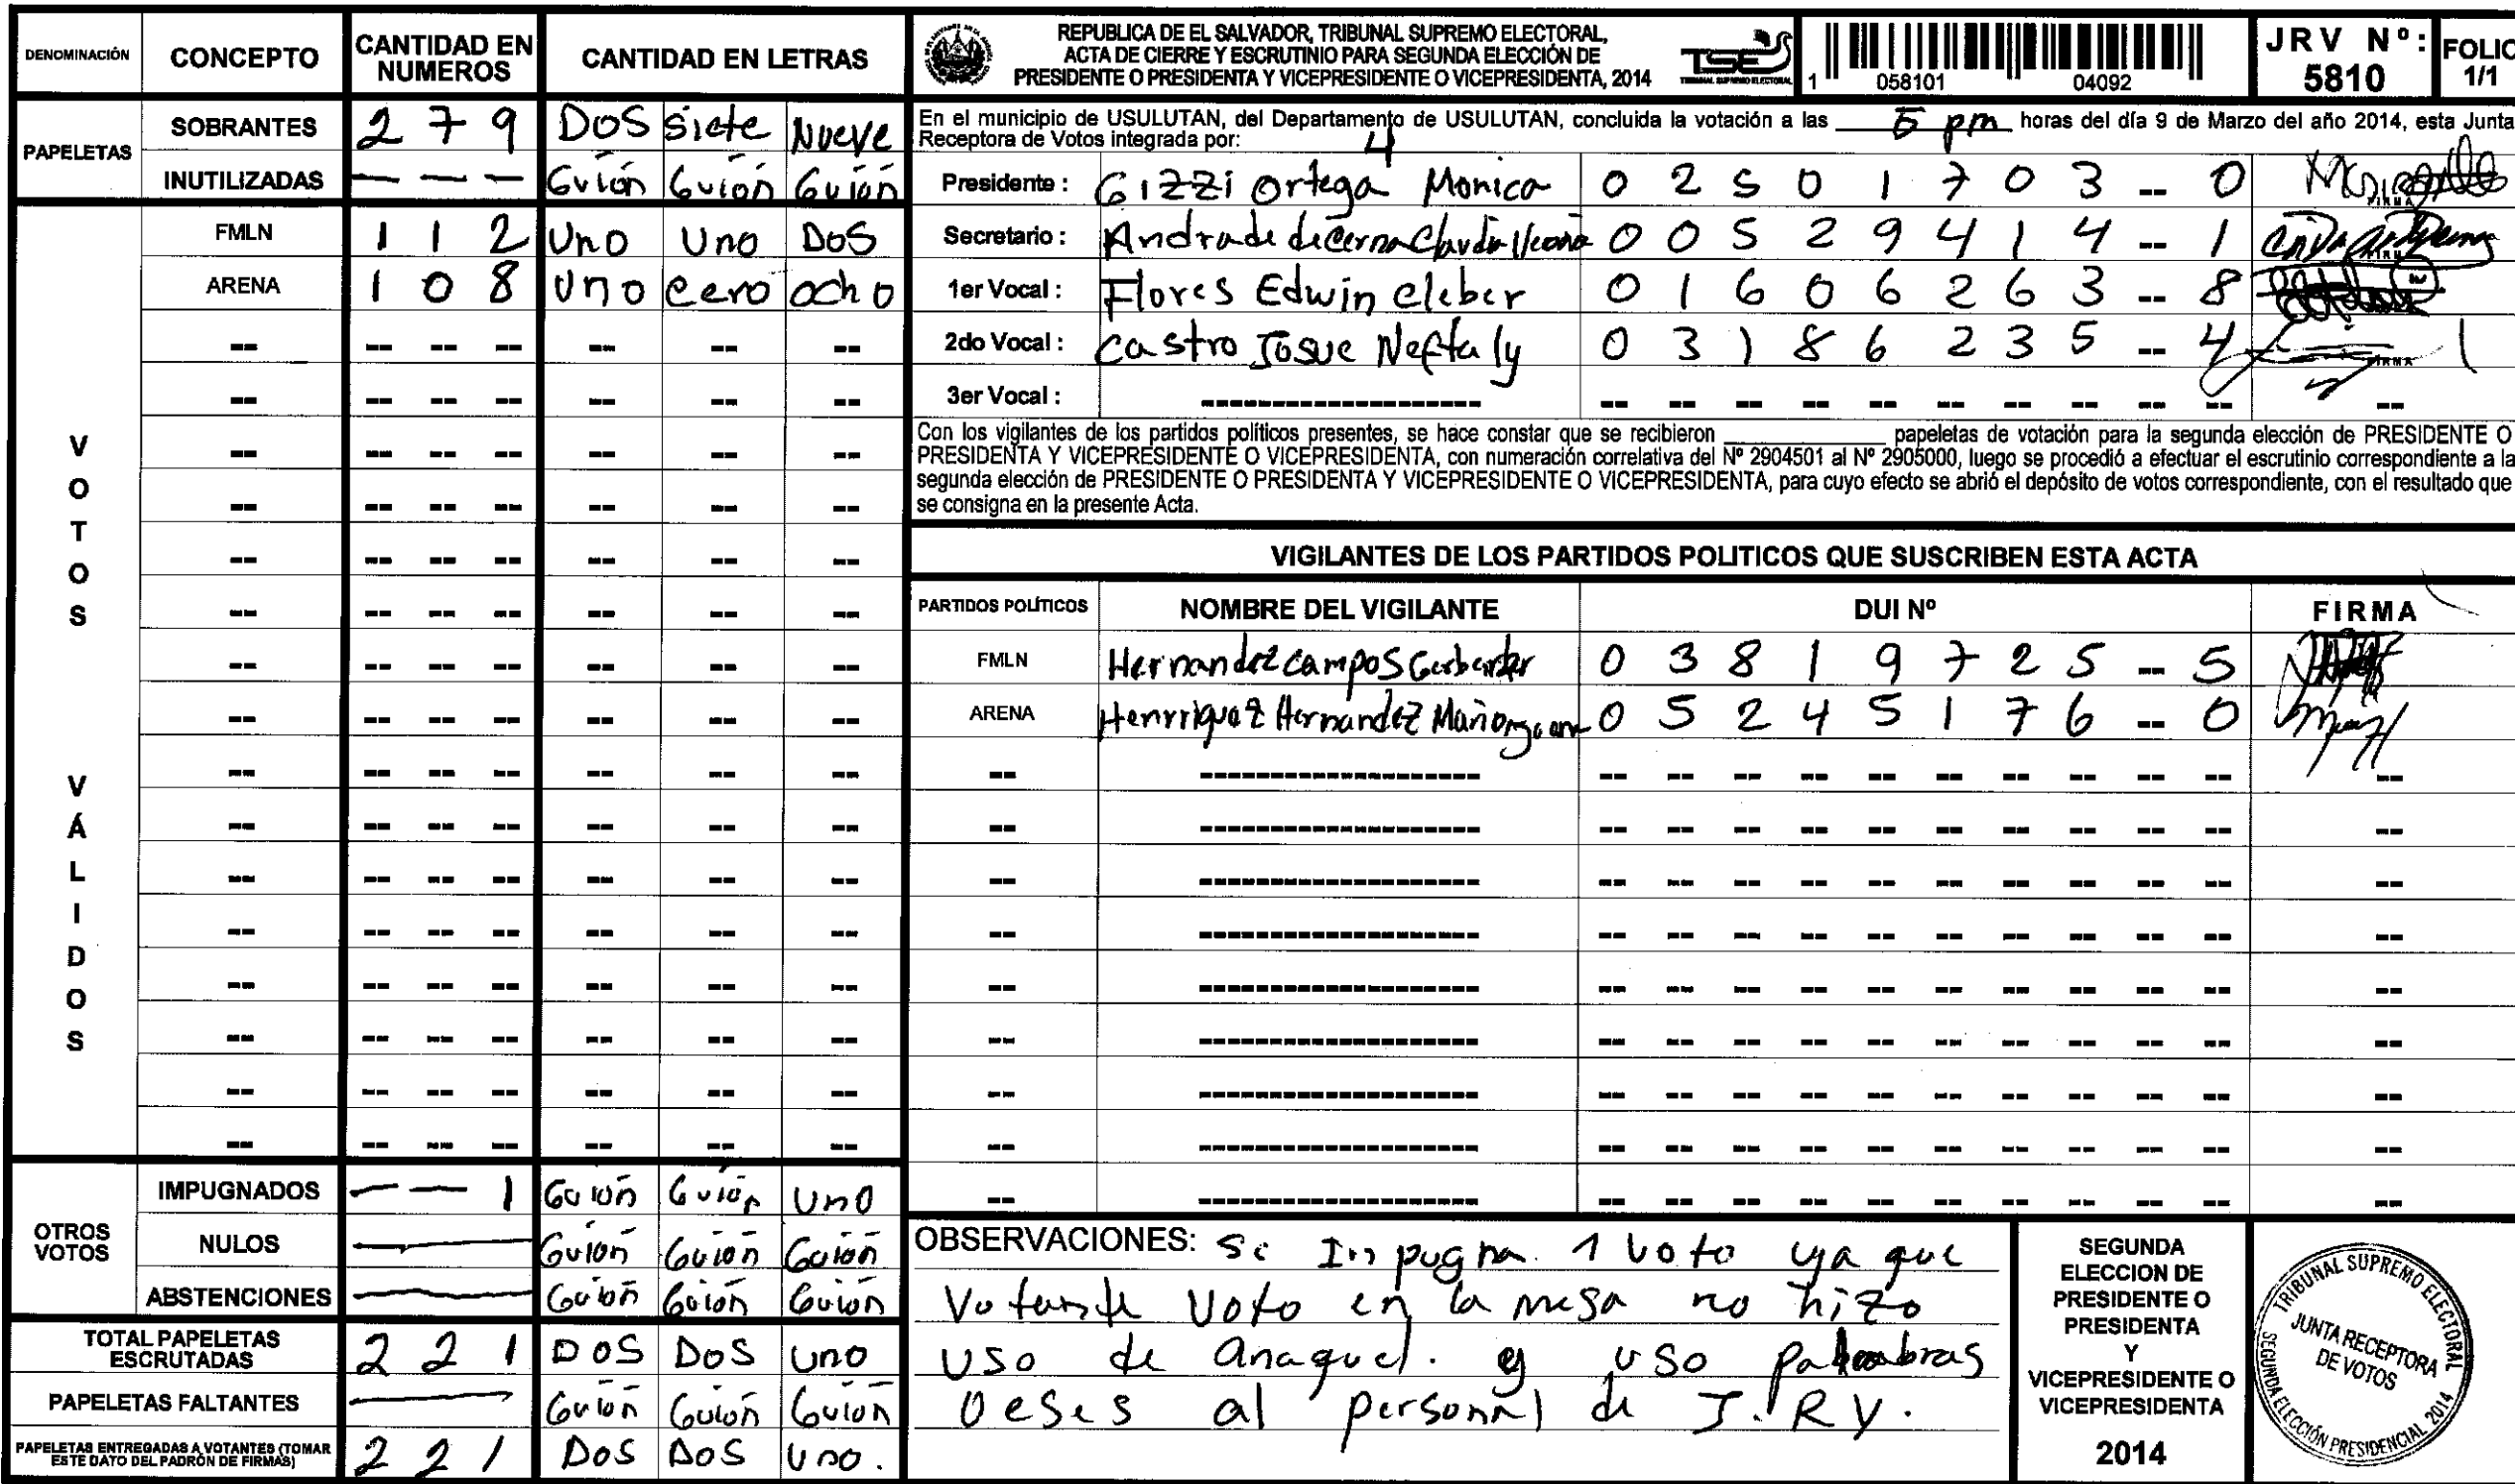 DENOMINACIÓN CONCEPTO CANTIDAD EN NUMEROS CANTIDAD EN LETRAS
PAPELETAS
SOBRANTES 2 7 9 DOS Siete Nueve
INUTILIZADAS — — — Guión Guión Guión
VOTOS VÁLIDOS
FMLN 1 1 2 Uno Uno DOS
ARENA 1 0 8 Uno cero ocho
OTROS VOTOS
IMPUGNADOS — — 1 Guión Guión Uno
NULOS — Guión Guión Guión
ABSTENCIONES — Guión Guión Guión
TOTAL PAPELETAS ESCRUTADAS 2 2 1 DOS DOS uno
PAPELETAS FALTANTES — Guión Guión Guión
PAPELETAS ENTREGADAS A VOTANTES (TOMAR ESTE DATO DEL PADRÓN DE FIRMAS) 2 2 1 DOS DOS uno.
REPUBLICA DE EL SALVADOR, TRIBUNAL SUPREMO ELECTORAL,
ACTA DE CIERRE Y ESCRUTINIO PARA SEGUNDA ELECCIÓN DE
PRESIDENTE O PRESIDENTA Y VICEPRESIDENTE O VICEPRESIDENTA, 2014
TSE
TRIBUNAL SUPREMO ELECTORAL
1 058101 04092
JRV Nº: 5810
FOLIO 1/1
En el municipio de USULUTAN, del Departamento de USULUTAN, concluida la votación a las 5 pm horas del día 9 de Marzo del año 2014, esta Junta
Receptora de Votos integrada por: 4
Presidente : Gizzi Ortega Monica 0 2 5 0 1 7 0 3 -- 0
Secretario : Andrade de Cerna 0 0 5 2 9 4 1 4 -- 1
1er Vocal : Flores Edwin cleber 0 1 6 0 6 2 6 3 -- 8
2do Vocal : Castro Josue Neftaly 0 3 1 8 6 2 3 5 -- 4
3er Vocal :
FIRMA
Con los vigilantes de los partidos políticos presentes, se hace constar que se recibieron ____ papeletas de votación para la segunda elección de PRESIDENTE O
PRESIDENTA Y VICEPRESIDENTE O VICEPRESIDENTA, con numeración correlativa del Nº 2904501 al Nº 2905000, luego se procedió a efectuar el escrutinio correspondiente a la
segunda elección de PRESIDENTE O PRESIDENTA Y VICEPRESIDENTE O VICEPRESIDENTA, para cuyo efecto se abrió el depósito de votos correspondiente, con el resultado que
se consigna en la presente Acta.
VIGILANTES DE LOS PARTIDOS POLITICOS QUE SUSCRIBEN ESTA ACTA
PARTIDOS POLÍTICOS NOMBRE DEL VIGILANTE DUI Nº FIRMA
FMLN Hernandez campos 0 3 8 1 9 7 2 5 -- 5
ARENA Henrriquez Hernandez 0 5 2 4 5 1 7 6 -- 0
OBSERVACIONES: Se Impugna. 1 voto ya que
Votante Voto en la mesa no hizo
uso de anaquel. y uso palabras
al personal de J.RV.
SEGUNDA
ELECCION DE
PRESIDENTE O
PRESIDENTA
Y
VICEPRESIDENTE O
VICEPRESIDENTA
2014
TRIBUNAL SUPREMO ELECTORAL
JUNTA RECEPTORA
DE VOTOS
SEGUNDA ELECCIÓN PRESIDENCIAL 2014